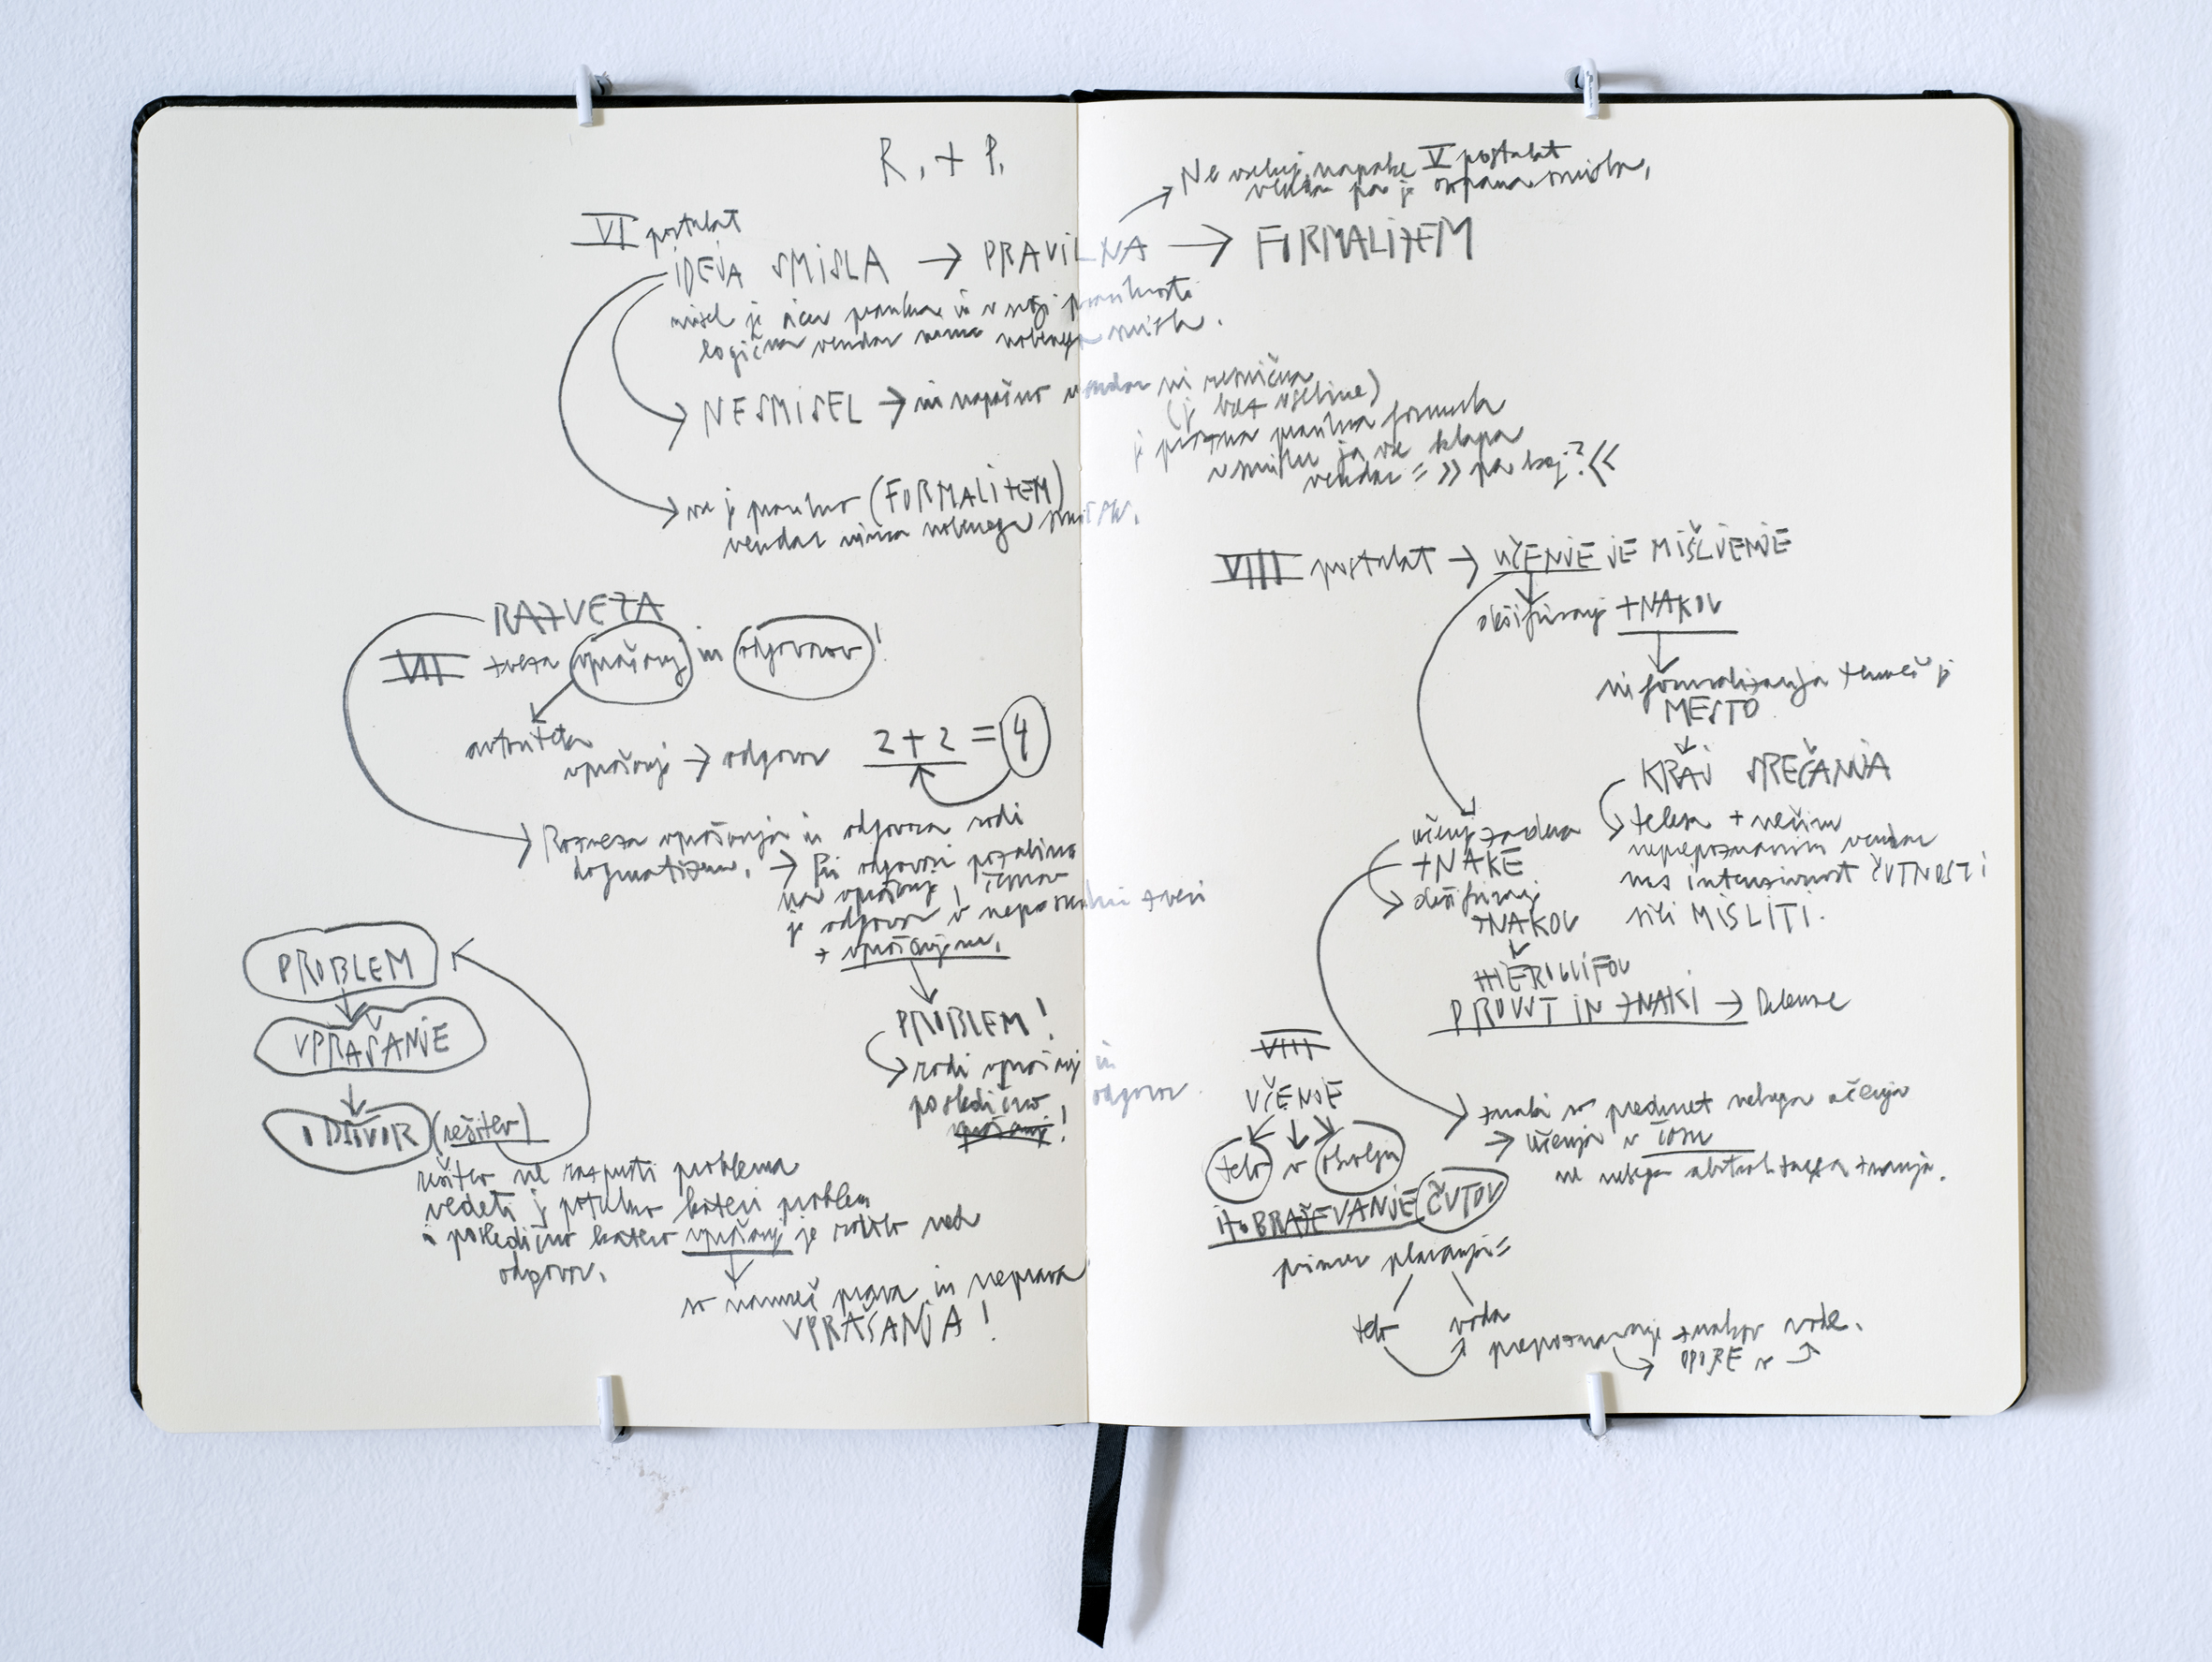 R. + P.
VI postulat
IDEJA SMISLA → PRAVILNA → FORMALIZEM
Ne vsebuje napake V postulat
vendar pa je smisla.
misel je sicer pravilna in v svoji pravilnosti
logična vendar nima nobenega smisla.
NESMISEL → ni napačno vendar ni resnična
(je brez vsebine)
je prazna pravilna formula
v smislu ja vse klapa
vendar = »pa kaj?«
vse je pravilno (FORMALIZEM)
vendar nima nobenega smisla.
RAZVEZA
VII zveza vprašanj in odgovorov!
avtoriteta
vprašanje → odgovor 2 + 2 = 4
Razveza vprašanja in odgovora rodi
dogmatizem. → Pri odgovoru pozabimo
na vprašanje, čemur
je odgovor v neposredni zvezi
z vprašanjem.
PROBLEM!
rodi vprašanje in
posledično odgovor
vprašanje!
PROBLEM
VPRAŠANJE
ODGOVOR (rešitev)
rešitev ne razpusti problema
vedeti je potrebno kateri problem
in posledično katero vprašanje je rodilo ned
odgovor.
so namreč prava in neprava
VPRAŠANJA!
VIII postulat → UČENJE JE MIŠLJENJE
dešifriranje ZNAKOV
ni formalizacija temveč je
MESTO
KRAJ SREČANJA
telesa z nečim
neprepoznavnim vendar
nas intenzivnost ČUTNOSTI
sili MISLITI.
učenje zadeva
ZNAKE
dešifriranje
ZNAKOV
HIEROGLIFOV
PROUST IN ZNAKI → Deleuze
znaki so predmet nekega učenja
→ učenja v času
ne nekega abstraktnega znanja.
VIII
UČENJE
telo v okolju
IZOBRAŽEVANJE ČUTOV
primer plavanja =
telo voda
prepoznavanje znakov vode.
OPIRE v